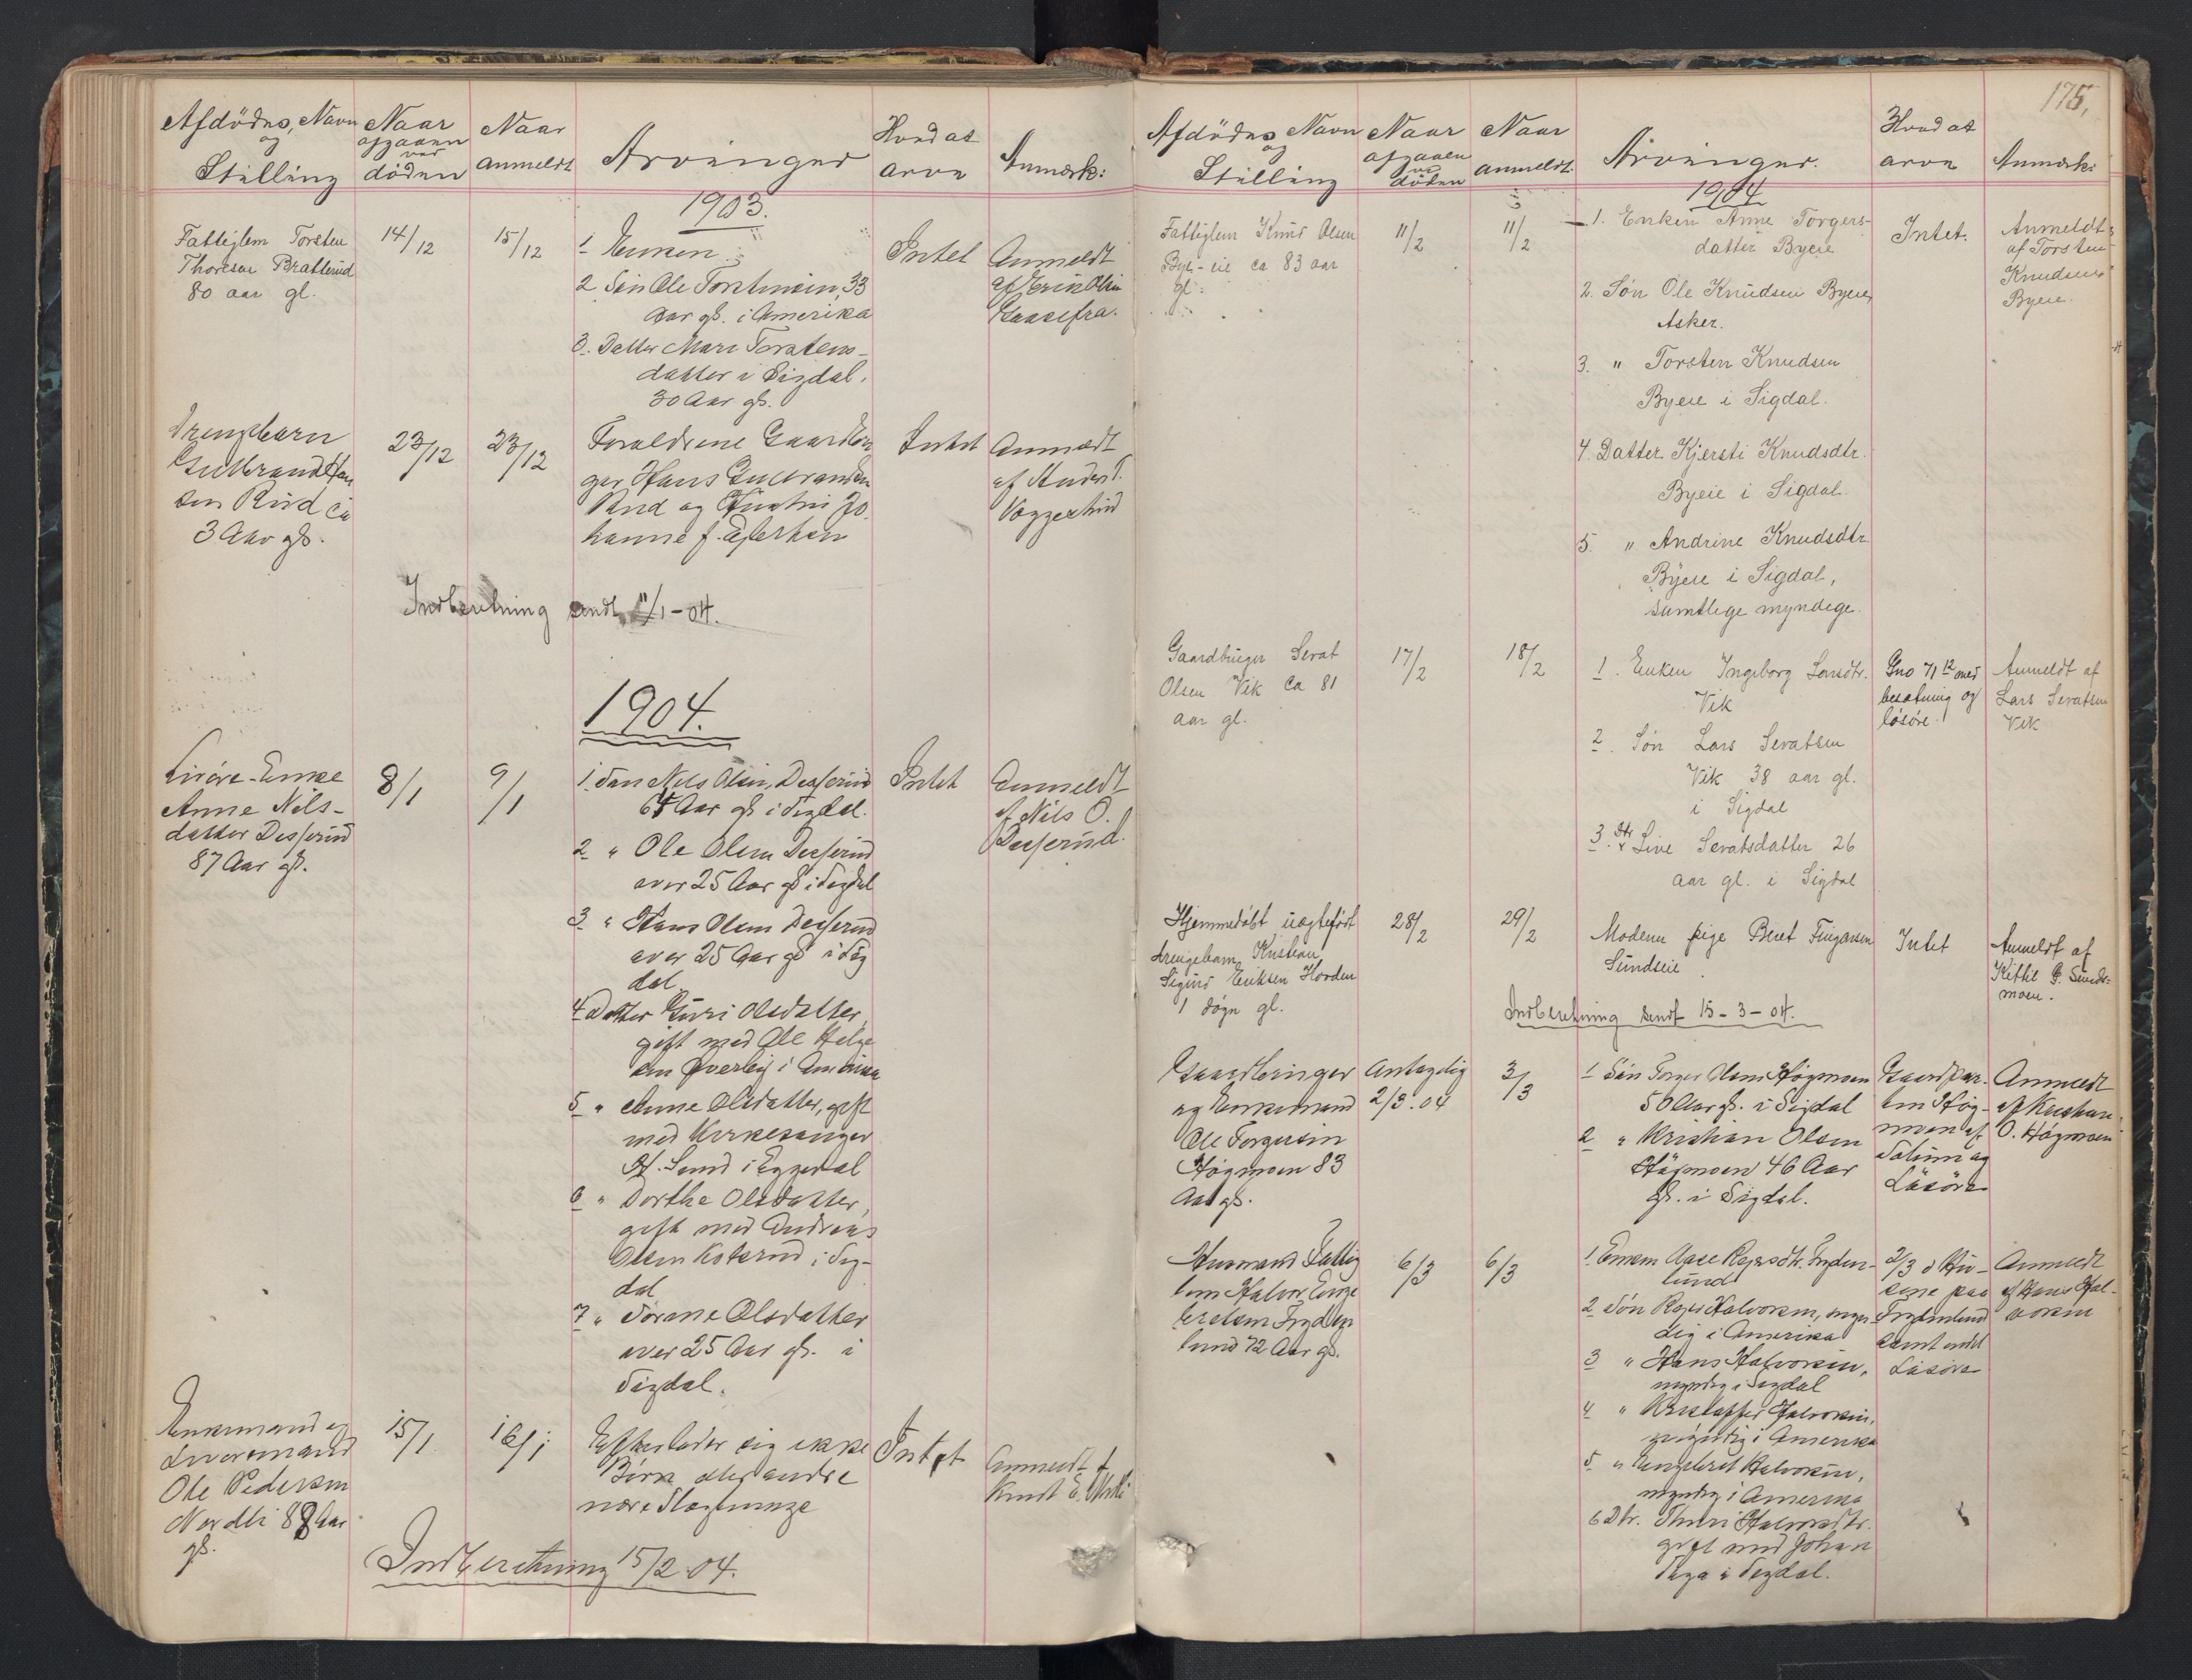 Afdödes, Navn
og
Stilling
Naar
afgaaen
ved
döden
Naar
anmeldt
Arvinger
Hvad at
arve
Anmærk:
1903.
Fattiglem Torsten
Thoresen Bratterud
80 aar gl.
14/12
15/12
1 Enken
2 Sön Ole Torstensen, 33
Aar gl. i Amerika
3. Datter Mari Torstens-
datter i Sigdal.
30 Aar gl.
Intet
Anmeldt
af Erik Olsen
Drengebarn
Gulbrand Han
sen Rud ca
3 Aar gl.
23/12
23/12
Foraldrene Gaardbru
ger Hans Gulbrandsen
Rud og Hustru Jo
hanne f. Eftersken
Intet
Anmeldt
af Anders T.
Indberetning sendt 11/1-04.
1904.
Anne Nils-
datter Desserud
87 Aar gl.
8/1
9/1
1. Søn Nils Olsen, Desserud
64 Aar gl i Sigdal.
2 " Ole Olsen Desserud
over 25 Aar gl i Sigdal
3 " Hans Olsen Desserud
over 25 Aar gl i Sig
dal.
4 Datter Guri Olsdatter,
gift med Ole Helge
sen Øverby i Amerika
5 " Anne Olsdatter, gift
med Kirkesanger
H. Lund i Eggedal
6 " Dorthe Olsdatter,
gift med Andreas
Olsen Koterud i Sig-
dal
7 " Sørine Olsdatter
over 25 Aar gl. i
Sigdal.
Intet
Anmeldt
af Nils O.
Desserud.
Enkemand og
Ole Pedersen
Nordli 88 Aar
gl.
15/1
16/1
Efterlader sig ikke
Börn eller andre
nære Slægtninge
Intet
Anmeldt af
Knut E.
Indberetning 15/2 04.
175,
Afdödes Navn
og
Stilling
Naar
afgaaen
ved
döden
Naar
anmeldt.
Arvinger.
Hvad at
arve
Anmærk:
1904
Fattiglem Knut Olsen
Bye-eie ca 83 aar
gl.
11/2
11/2
1. Enken Anne Torgers-
datter Byeie
2. Søn Ole Knudsen Byeie,
Asker.
3. " Torsten Knudsen
Byeie i Sigdal.
4. Datter Kjersti Knudsdtr.
Byeie i Sigdal.
5. " Andrine Knudsdtr
Byeie i Sigdal,
samtlige myndige.
Intet.
Anmeldt
af Torsten
Knudsen
Byeie.
Gaardbruger Sevat
Olsen Vik ca 81
aar gl.
17/2
18/2
1. Enken Ingeborg Larsdtr.
Vik
2. Søn Lars Sevatsen
Vik 38 aar gl.
i Sigdal
3. Dtr Live Sevatsdatter 26
aar gl. i Sigdal
Gno 71 12 med
besætning og
løsøre.
Anmeldt af
Lars Sevatsen
Vik
Hjemmedöbt uægtefødt
drengebarn Kristian
Sigurd Eriksen Horden
1 døgn gl.
28/2
29/2
Moderen pige Beret Fingarsen
Sundseie
Intet
Anmeldt af
Kittil G. Sunds-
moen.
Indberetning sendt 15-3-04.
Gaardbruger
og Enkemand
Ole Torgersen
Högmoen 83
Aar gl.
Antagelig
2/3.04
3/3
1 Sön Torger Olsen Högmoen
50 Aar gl. i Sigdal
2 " Kristian Olsen
Högmoen 46 Aar
gl. i Sigdal.
Gaardpar-
ten Hög-
moen af
Solum og
Lösöre
Anmeldt
af Kristian
O. Högmoen
Husmand Fattig
lem Halvor Enge
bretsen Fryden
lund 72 Aar gl.
6/3
6/3
1. Enken Aase Rejersdtr. Fryden-
lund
2 Sön Rejer Halvorsen, myn-
dig i Amerika
3 " Hans Halvorsen,
myndig i Sigdal
4 " Kristoffer Halvorsen,
myndig i Amerika
5 " Engebret Halvorsen,
myndig i Amerika
6 Dtr. Thuri Halvorsdtr.
gift med Johan
Haga i Sigdal.
2/3 i Hu-
sene paa
Frydenlund
samt endel
Lösöre
Anmeldt
af Hans Hal-
vorsen